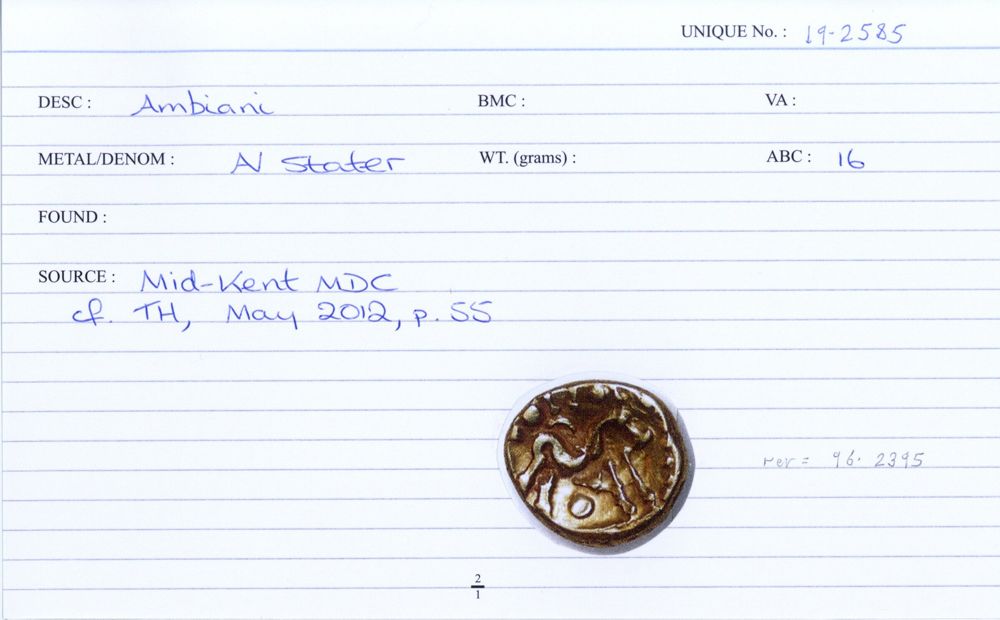 UNIQUE No. : 19-2585
DESC : Ambiani BMC : VA :
METAL/DENOM : AV Stater WT. (grams) : ABC : 16
FOUND :
SOURCE : Mid-Kent MDC
cf. TH, May 2012, p. 55
rev = 96. 2395
2
1